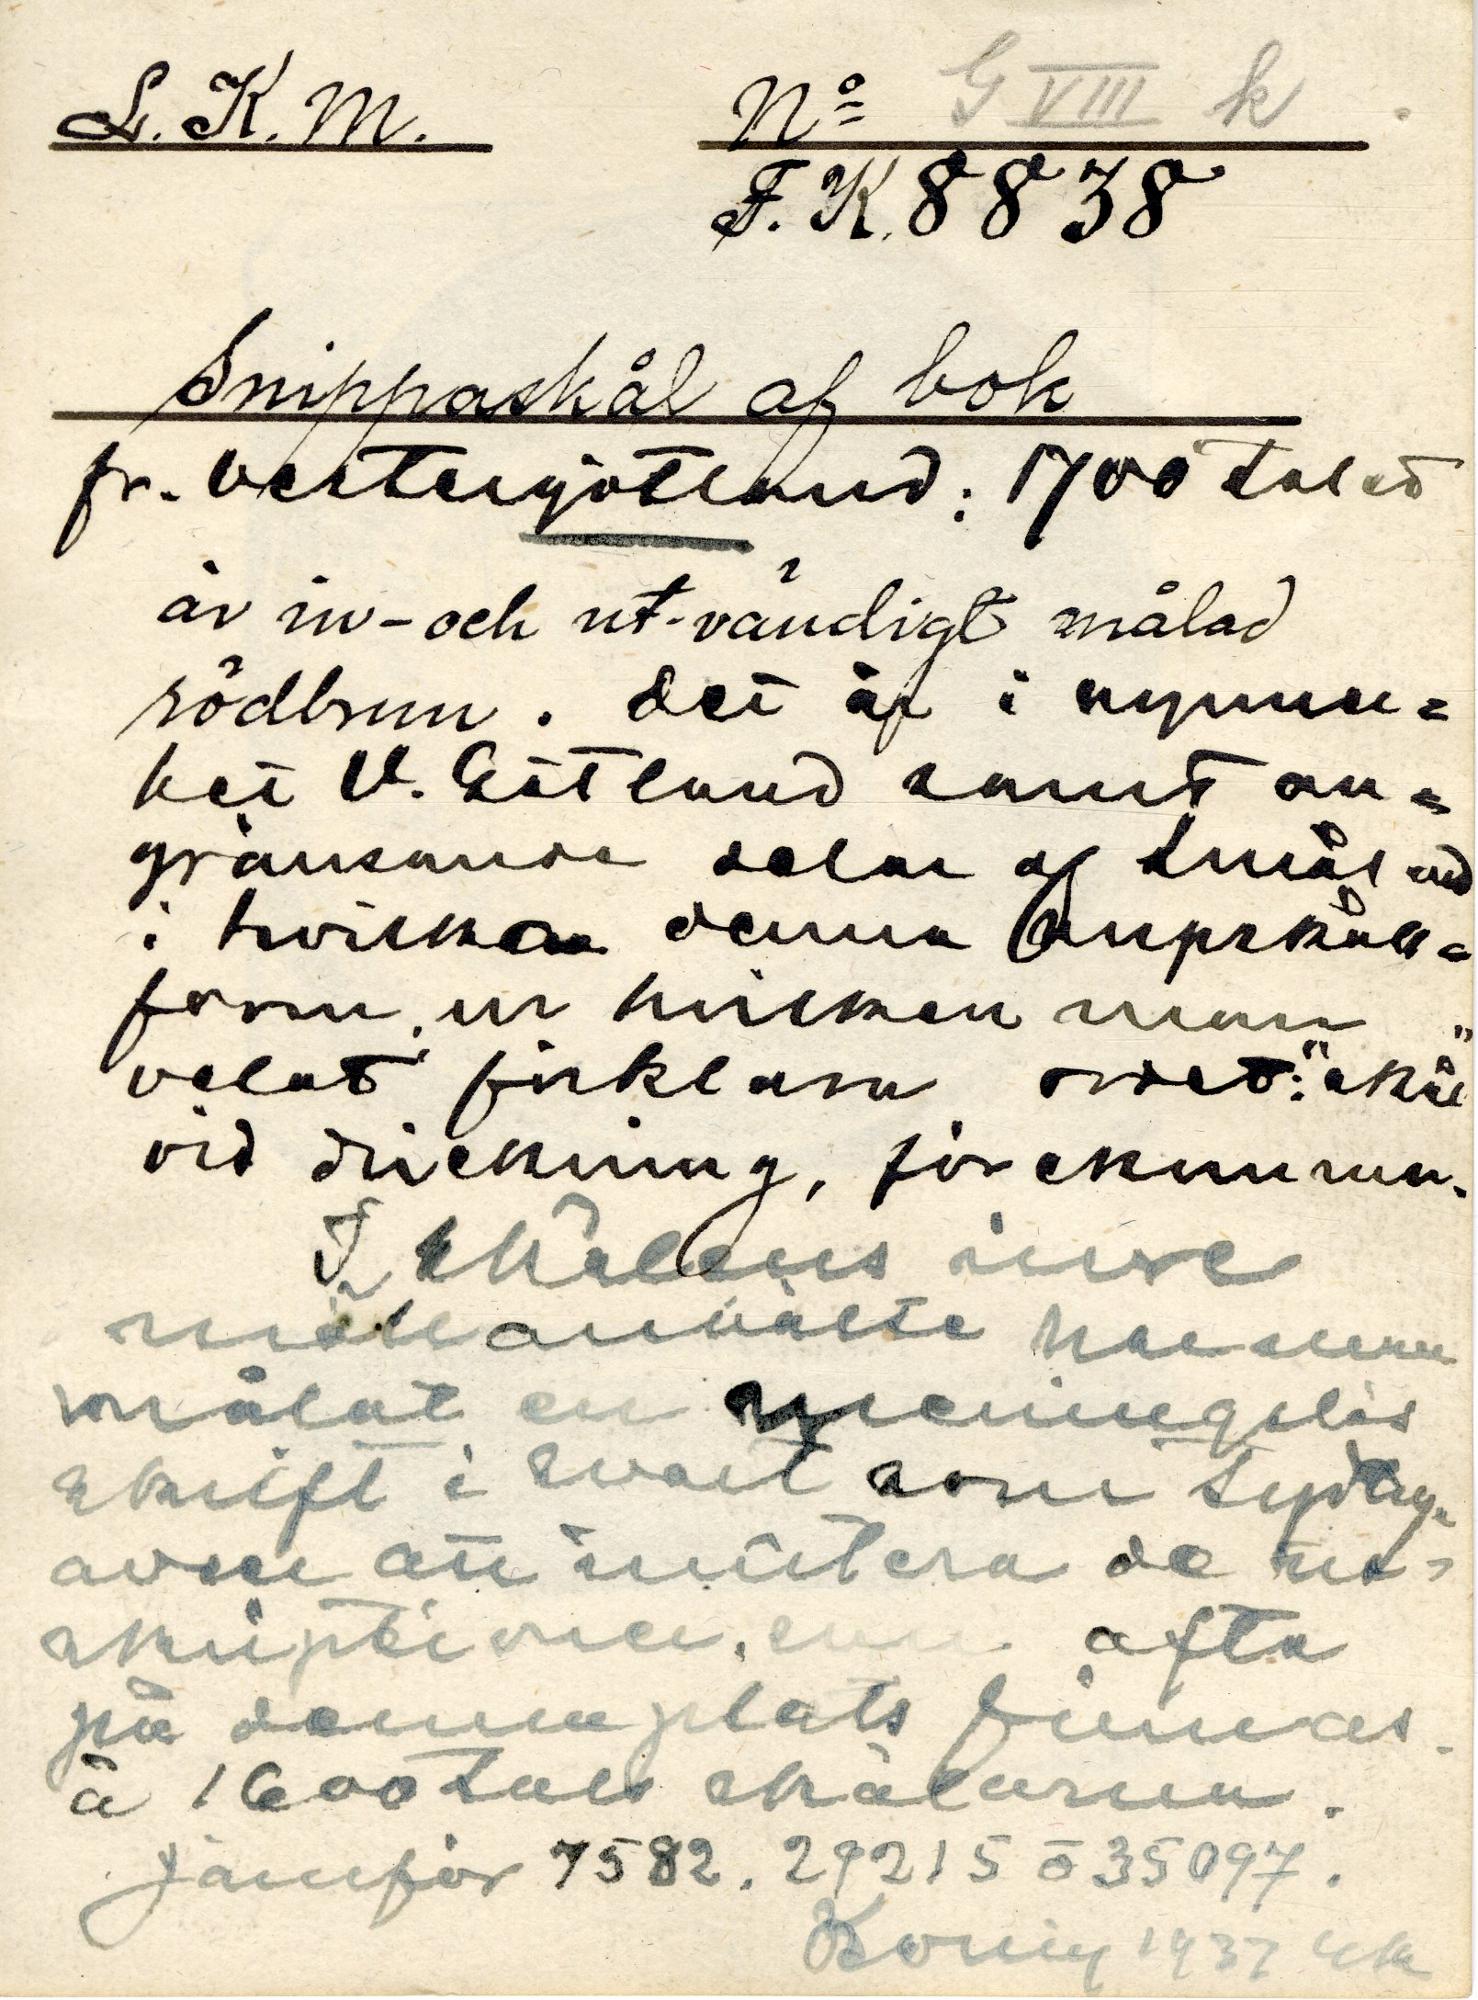 L. K. M.
No G VIII k
F. K. 8838
Snippaskål af bok
fr. Vestergötland; 1700talet
är in- och ut-vändigt målad
rödbrun. Det är i synner=
het V. Götland samt an=
gränsande delar af Småland
i hvilka denna supskåls=
form, ur hvilken man
velat förklara ordet: "skål"
vid drickning, förekommer.
I skålens inre
målat en meningslös
skrift i svart som tydlig
avser att imitera de in=
skriptioner, som ofta
på denna plats finnas
å 1600tals skålarna.
Jämför 7582. 29215 o 35097.
1937